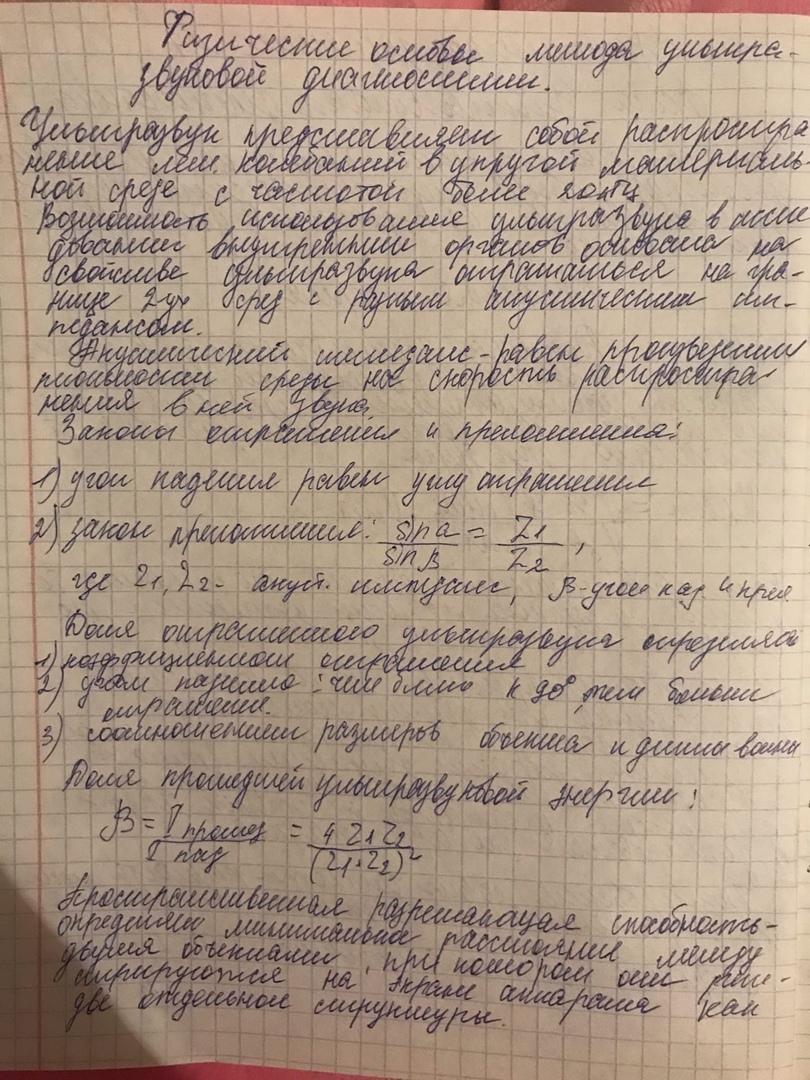 Физические основы метода ультра-
звуковой диагностики.
Ультразвук представляет собой распростра
нение мех. колебаний в упругой материаль-
ной среде с частотой более 20кГц
Возможность использования ультразвука в иссле
довании внутренних органов основана на
свойстве ультразвука отражаться на гра-
нице 2ух сред с разным акустическим им-
педансом.
Акустический импеданс - равен произведению
плотности среды на скорость распростра
нения в ней звука.
Законы отражения и преломления:
1) угол падения равен углу отражения
2) закон преломления: sin a / sin β = Z1 / Z2,
где Z1, Z2 - акуст. импеданс, β - угол пад. и прел.
Доля отраженного ультразвука определяется
1) коэффициентом отражения
2) углом падения: чем ближе к 90°, тем больше
отражение.
3) соотношением размеров объекта и длины волны
Доля прошедшей ультразвуковой энергии:
β = I прошед / I пад = 4 Z1 Z2 / (Z1+Z2)²
Пространственная разрешающая способность -
определяет минимальное расстояние между
двумя объектами, при котором они реги-
стрируются на экране аппарата как
две отдельной структуры.